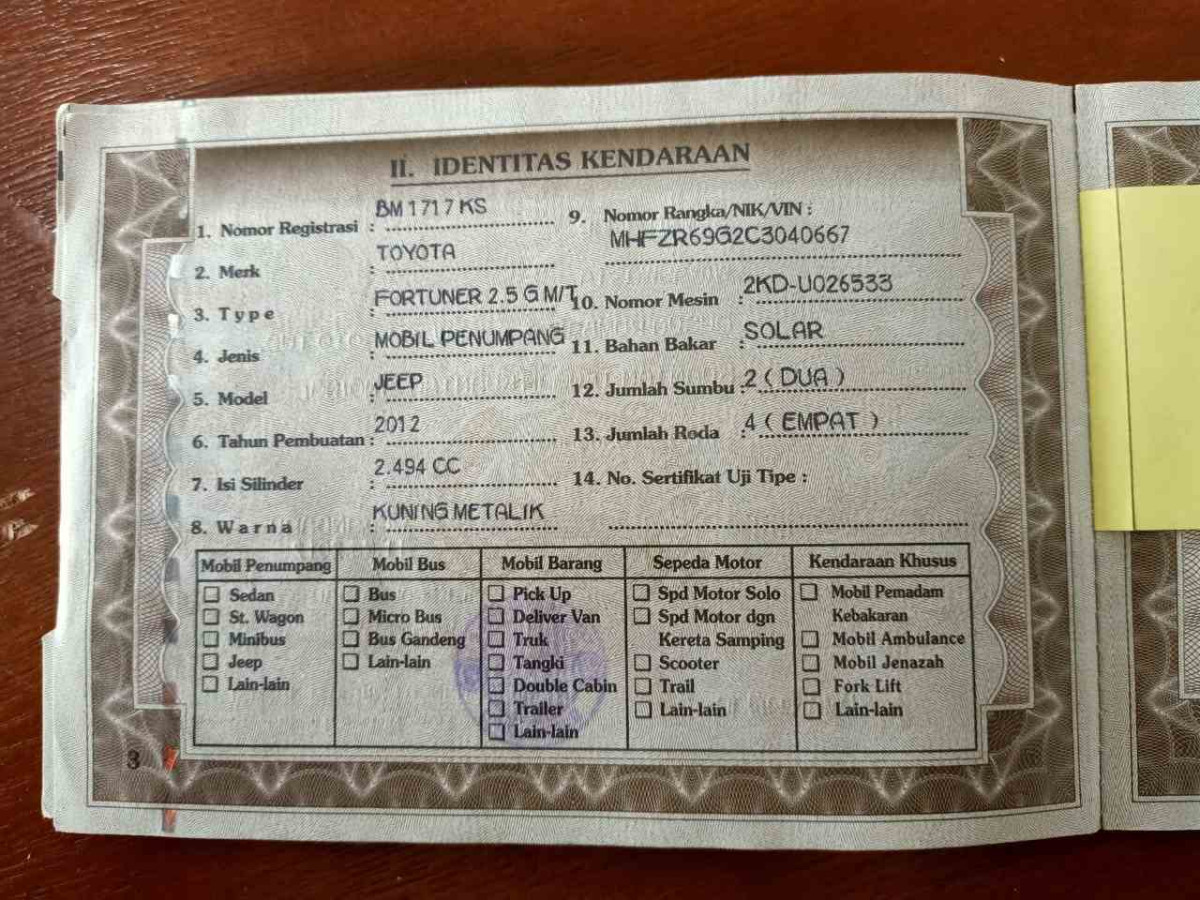 II. IDENTITAS KENDARAAN
1. Nomor Registrasi : BM 1717 KS
2. Merk : TOYOTA
3. Type : FORTUNER 2.5 G M/T
4. Jenis : MOBIL PENUMPANG
5. Model : JEEP
6. Tahun Pembuatan : 2012
7. Isi Silinder : 2.494 CC
8. Warna : KUNING METALIK
9. Nomor Rangka/NIK/VIN :
MHFZR69G2C3040667
10. Nomor Mesin : 2KD-U026533
11. Bahan Bakar : SOLAR
12. Jumlah Sumbu : 2 ( DUA )
13. Jumlah Roda : 4 ( EMPAT )
14. No. Sertifikat Uji Tipe :
Mobil Penumpang
Sedan
St. Wagon
Minibus
Jeep
Lain-lain
Mobil Bus
Bus
Micro Bus
Bus Gandeng
Lain-lain
Mobil Barang
Pick Up
Deliver Van
Truk
Tangki
Double Cabin
Trailer
Lain-lain
Sepeda Motor
Spd Motor Solo
Spd Motor dgn
Kereta Samping
Scooter
Trail
Lain-lain
Kendaraan Khusus
Mobil Pemadam
Kebakaran
Mobil Ambulance
Mobil Jenazah
Fork Lift
Lain-lain
3